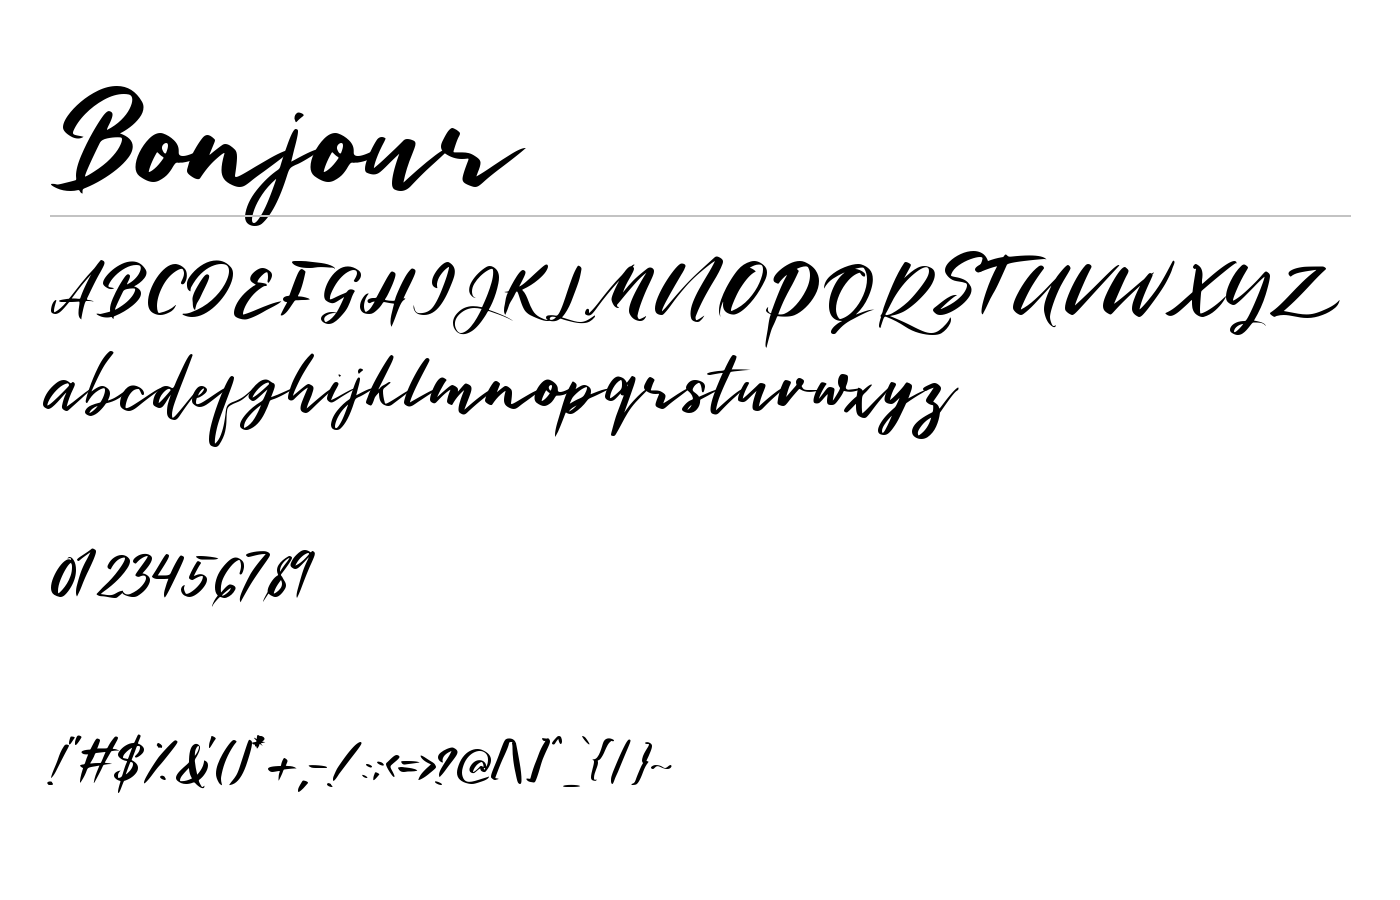 Bonjour
ABCDEFGHIJKLMNOPQRSTUVWXYZ
abcdefghijklmnopqrstuvwxyz
0123456789
!"#$%&'()*+,-./:;<=>?@[\]^_`{|}~